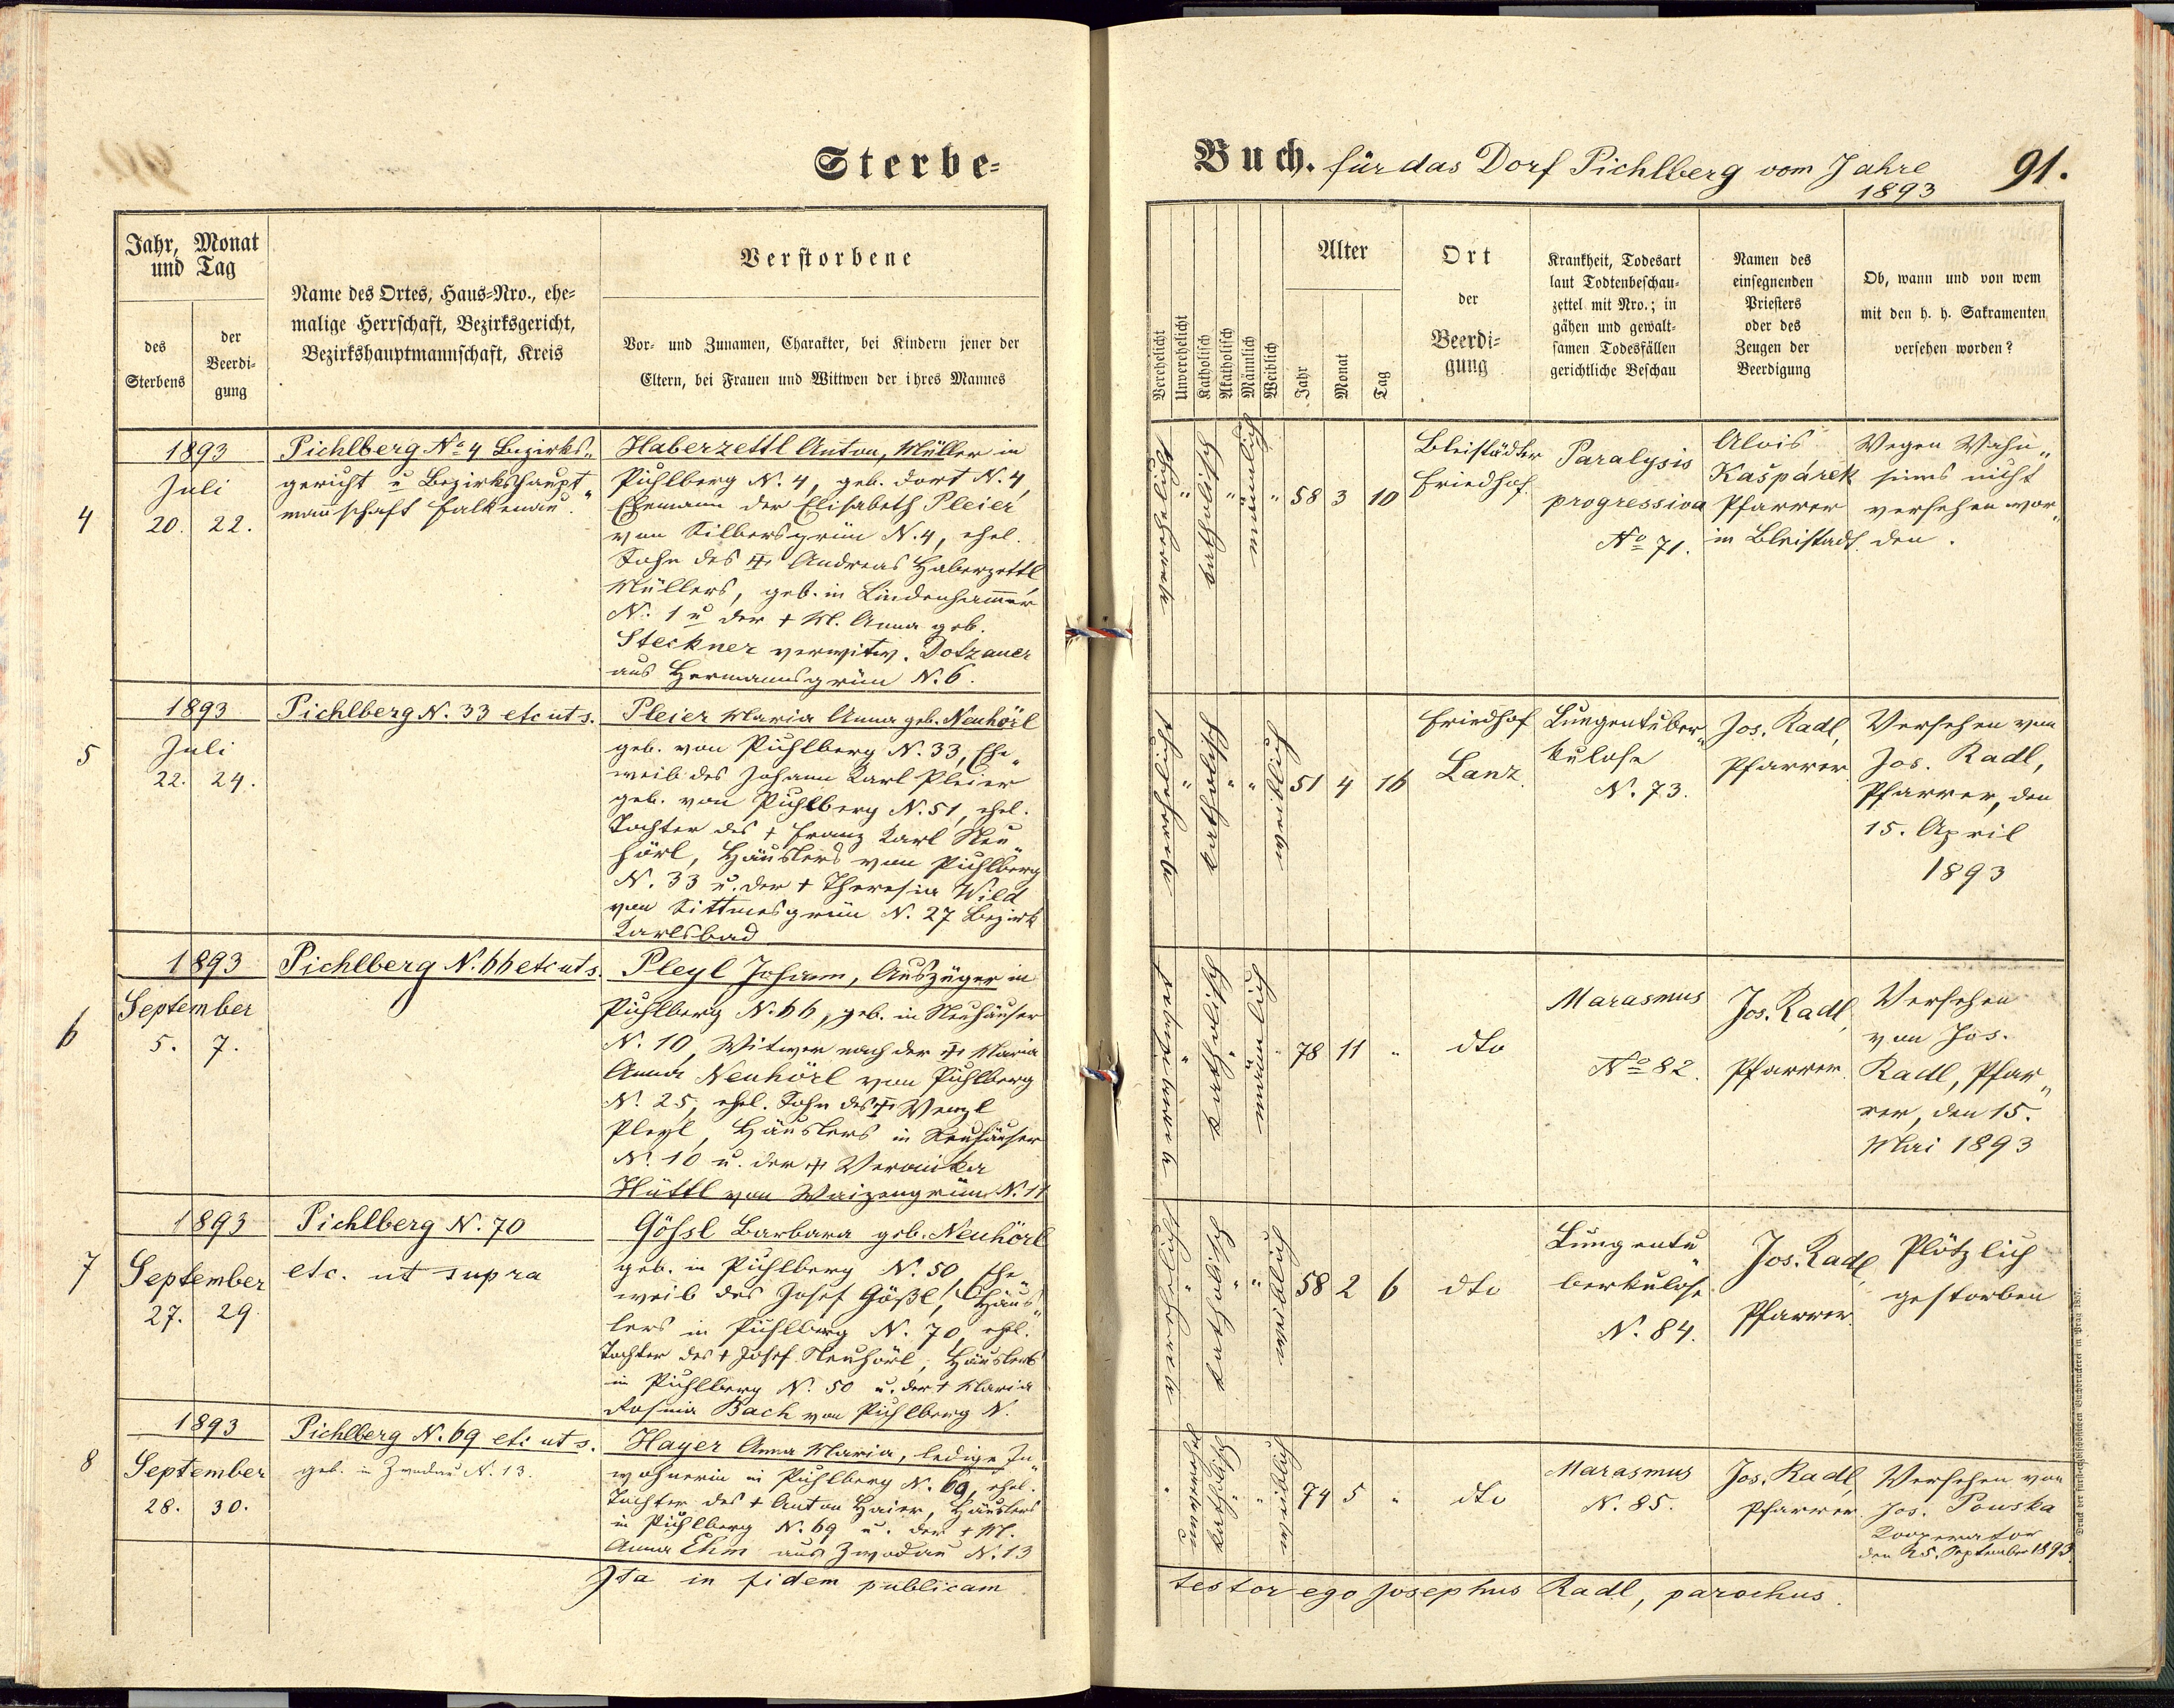 Sterbe=
Buch. für das Dorf Pichlberg vom Jahre
1893
91.
Jahr, Monat
und Tag
des
Sterbens
der
Beerdi-
gung
Name des Ortes, Haus=Nro., ehe=
malige Herrschaft, Bezirksgericht,
Bezirkshauptmannschaft, Kreis
Verstorbene
Vor= und Zunamen, Charakter, bei Kindern jener der
Eltern, bei Frauen und Wittwen der ihres Mannes
Verehelicht
Unverehelicht
Katholisch
Akatholisch
Männlich
Weiblich
Alter
Jahr
Monat
Tag
Ort
der
Beerdi=
gung
Krankheit, Todesart
laut Todtenbeschau=
zettel mit Nro.; in
gähen und gewalt=
samen Todesfällen
gerichtliche Beschau
Namen des
einsegnenden
Priesters
oder des
Zeugen der
Beerdigung
Ob, wann und von wem
mit den h. h. Sakramenten
versehen worden?
4
1893
Juli
20. 22.
Pichlberg No 4 Bezirks„
gericht u Bezirkshaupt„
mannschaft Falkenau.
Haberzettl Anton, Müller in
Pichlberg N. 4, geb. dort N. 4,
Ehemann der Elisabeth Pleier
von Silbersgrün N. 4, ehel.
Sohn des ‡ Andreas Haberzettl
Müllers, geb. in Lindenhammer
N. 1 u der + M. Anna geb.
Steckner verwitw. Dotzauer
aus Hermannsgrün N. 6.
verehelicht
"
katholisch
"
männlich
"
58 3 10
Bleistädter
Friedhof.
Paralysis
progressiva
No 71.
Alois
Kašpárek
Pfarrer
in Bleistadt.
Wegen Wahn„
sinns nicht
versehen wor„
den.
5
1893
Juli
22. 24.
Pichlberg N. 33 etc ut s.
Pleier Maria Anna geb. Neuhörl
geb. von Pichlberg N. 33, Ehe„
weib des Johann Karl Pleier
geb. von Pichlberg N. 51, ehel.
Tochter des + Franz Karl Neu„
hörl, Häuslers von Pichlberg
N. 33 u. der + Theresia Wild
von Sittmesgrün N. 27 Bezirk
Karlsbad
verehelicht
"
katholisch
"
"
weiblich
51 4 16
Friedhof
Lanz.
Lungentuber„
kulose
N. 73.
Jos. Radl,
Pfarrer.
Versehen von
Jos. Radl,
Pfarrer, den
15. April
1893
6
1893
September
5. 7.
Pichlberg N. 66 etc ut s.
Pleyl Johann, Auszüger in
Pichlberg N. 66, geb. in Neuhäuser
N. 10, Witwer nach der ‡ Maria
Anna Neuhörl von Pichlberg
N. 25, ehel. Sohn des ‡ Wenzl
Pleyl, Häuslers in Neuhäuser
N. 10 u. der ‡ Veronika
Hüttl von Waizengrün N. 11
verwitwet
"
katholisch
"
männlich
"
78 11 "
dto
Marasmus
No 82.
Jos. Radl,
Pfarrer.
Versehen
von Jos.
Radl, Pfar„
rer, den 15.
Mai 1893
7
1893
September
27. 29.
Pichlberg N. 70
etc. ut supra
Gößl Barbara geb. Neuhörl
geb. in Pichlberg N. 50, Ehe„
weib des Josef Gößl, Häus„
lers in Pichlberg N. 70, ehel.
Tochter des + Josef Neuhörl, Häuslers
in Pichlberg N. 50 u. der + Maria
Rosina Bach von Pichlberg N.
verehelicht
"
katholisch
"
"
weiblich
58 2 6
dto
Lungentu„
berkulose
N. 84.
Jos. Radl,
Pfarrer.
Plötzlich
gestorben
8
1893
September
28. 30.
Pichlberg N. 69 etc ut s.
geb. in Zwodau N. 13.
Hayer Anna Maria, ledige In„
wohnerin in Pichlberg N. 69, ehel.
Tochter des + Anton Haier, Häuslers
in Pichlberg N. 69 u. der + M.
Anna Ehm aus Zwodau N. 13
"
katholisch
"
"
weiblich
74 5 "
dto
Marasmus
N. 85.
Jos. Radl,
Pfarrer.
Versehen von
Jos. Pouska
Kooperator
den 25. September 1893
Ita in fidem publicam
testor ego Josephus Radl, parochus.
Druck der fürsterzbischöflichen Buchdruckerei in Prag 1857.